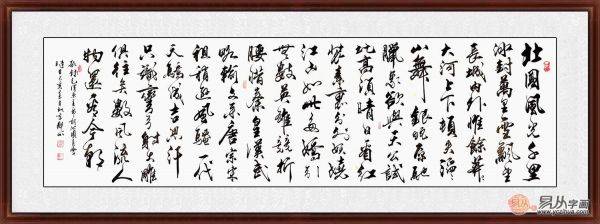 北國風光千里
冰封萬里雪飄望
長城內外惟餘莽莽
大河上下頓失滔滔
山舞銀蛇原馳
蠟象欲與天公試
比高須晴日看紅
裝素裹分外妖嬈
江山如此多嬌引
無數英雄競折
腰惜秦皇漢武
略輸文采唐宗宋
祖稍遜風騷一代
天驕成吉思汗
只識彎弓射大雕
俱往矣數風流人
物還看今朝
易从字画
www.yczihua.com